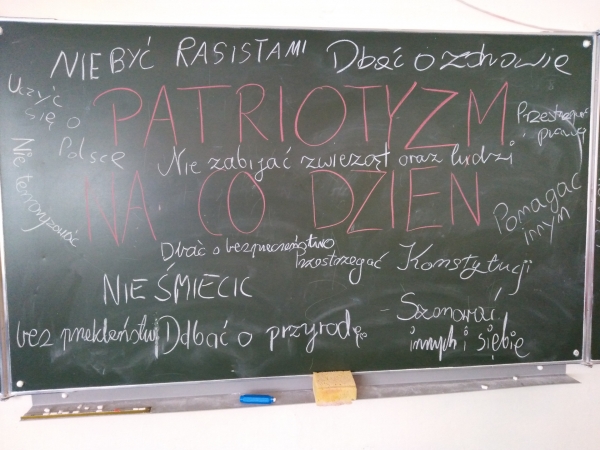 NIE BYĆ RASISTAMI
Dbać o zdrowie
Uczyć
się o
Polsce
PATRIOTYZM
Przestrzegać
prawa
Nie zabijać zwierząt oraz ludzi
Nie terroryzować
NA CO DZIEŃ
Pomagać
innym
Dbać o bezpieczeństwo
Przestrzegać Konstytucji
NIE ŚMIECIC
- Szanować
innych i siebie
bez przekleństw
Ddbać o przyrodę